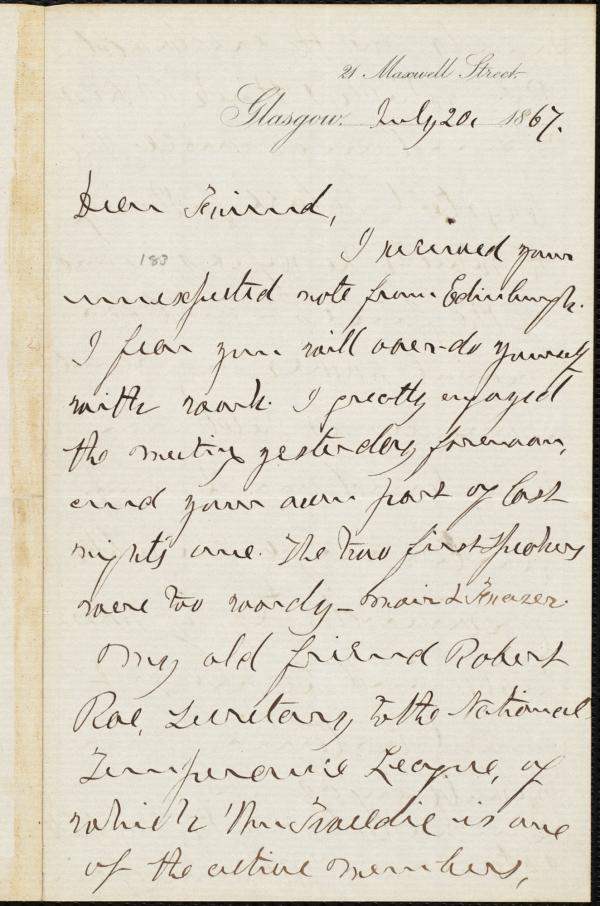 21 Maxwell Street
Glasgow. July 20, 1867.
Dear Friend,
I received your
183
unexpected note from Edinburgh.
I fear you will over-do yourself
with work. I greatly enjoyed
the meeting yesterday forenoon,
and your own part of last
night's one. The two first speakers
were too wordy – Moir &
My old friend Robert
Rae, Secretary to the National
Temperance League, of
which is one
of the active members,